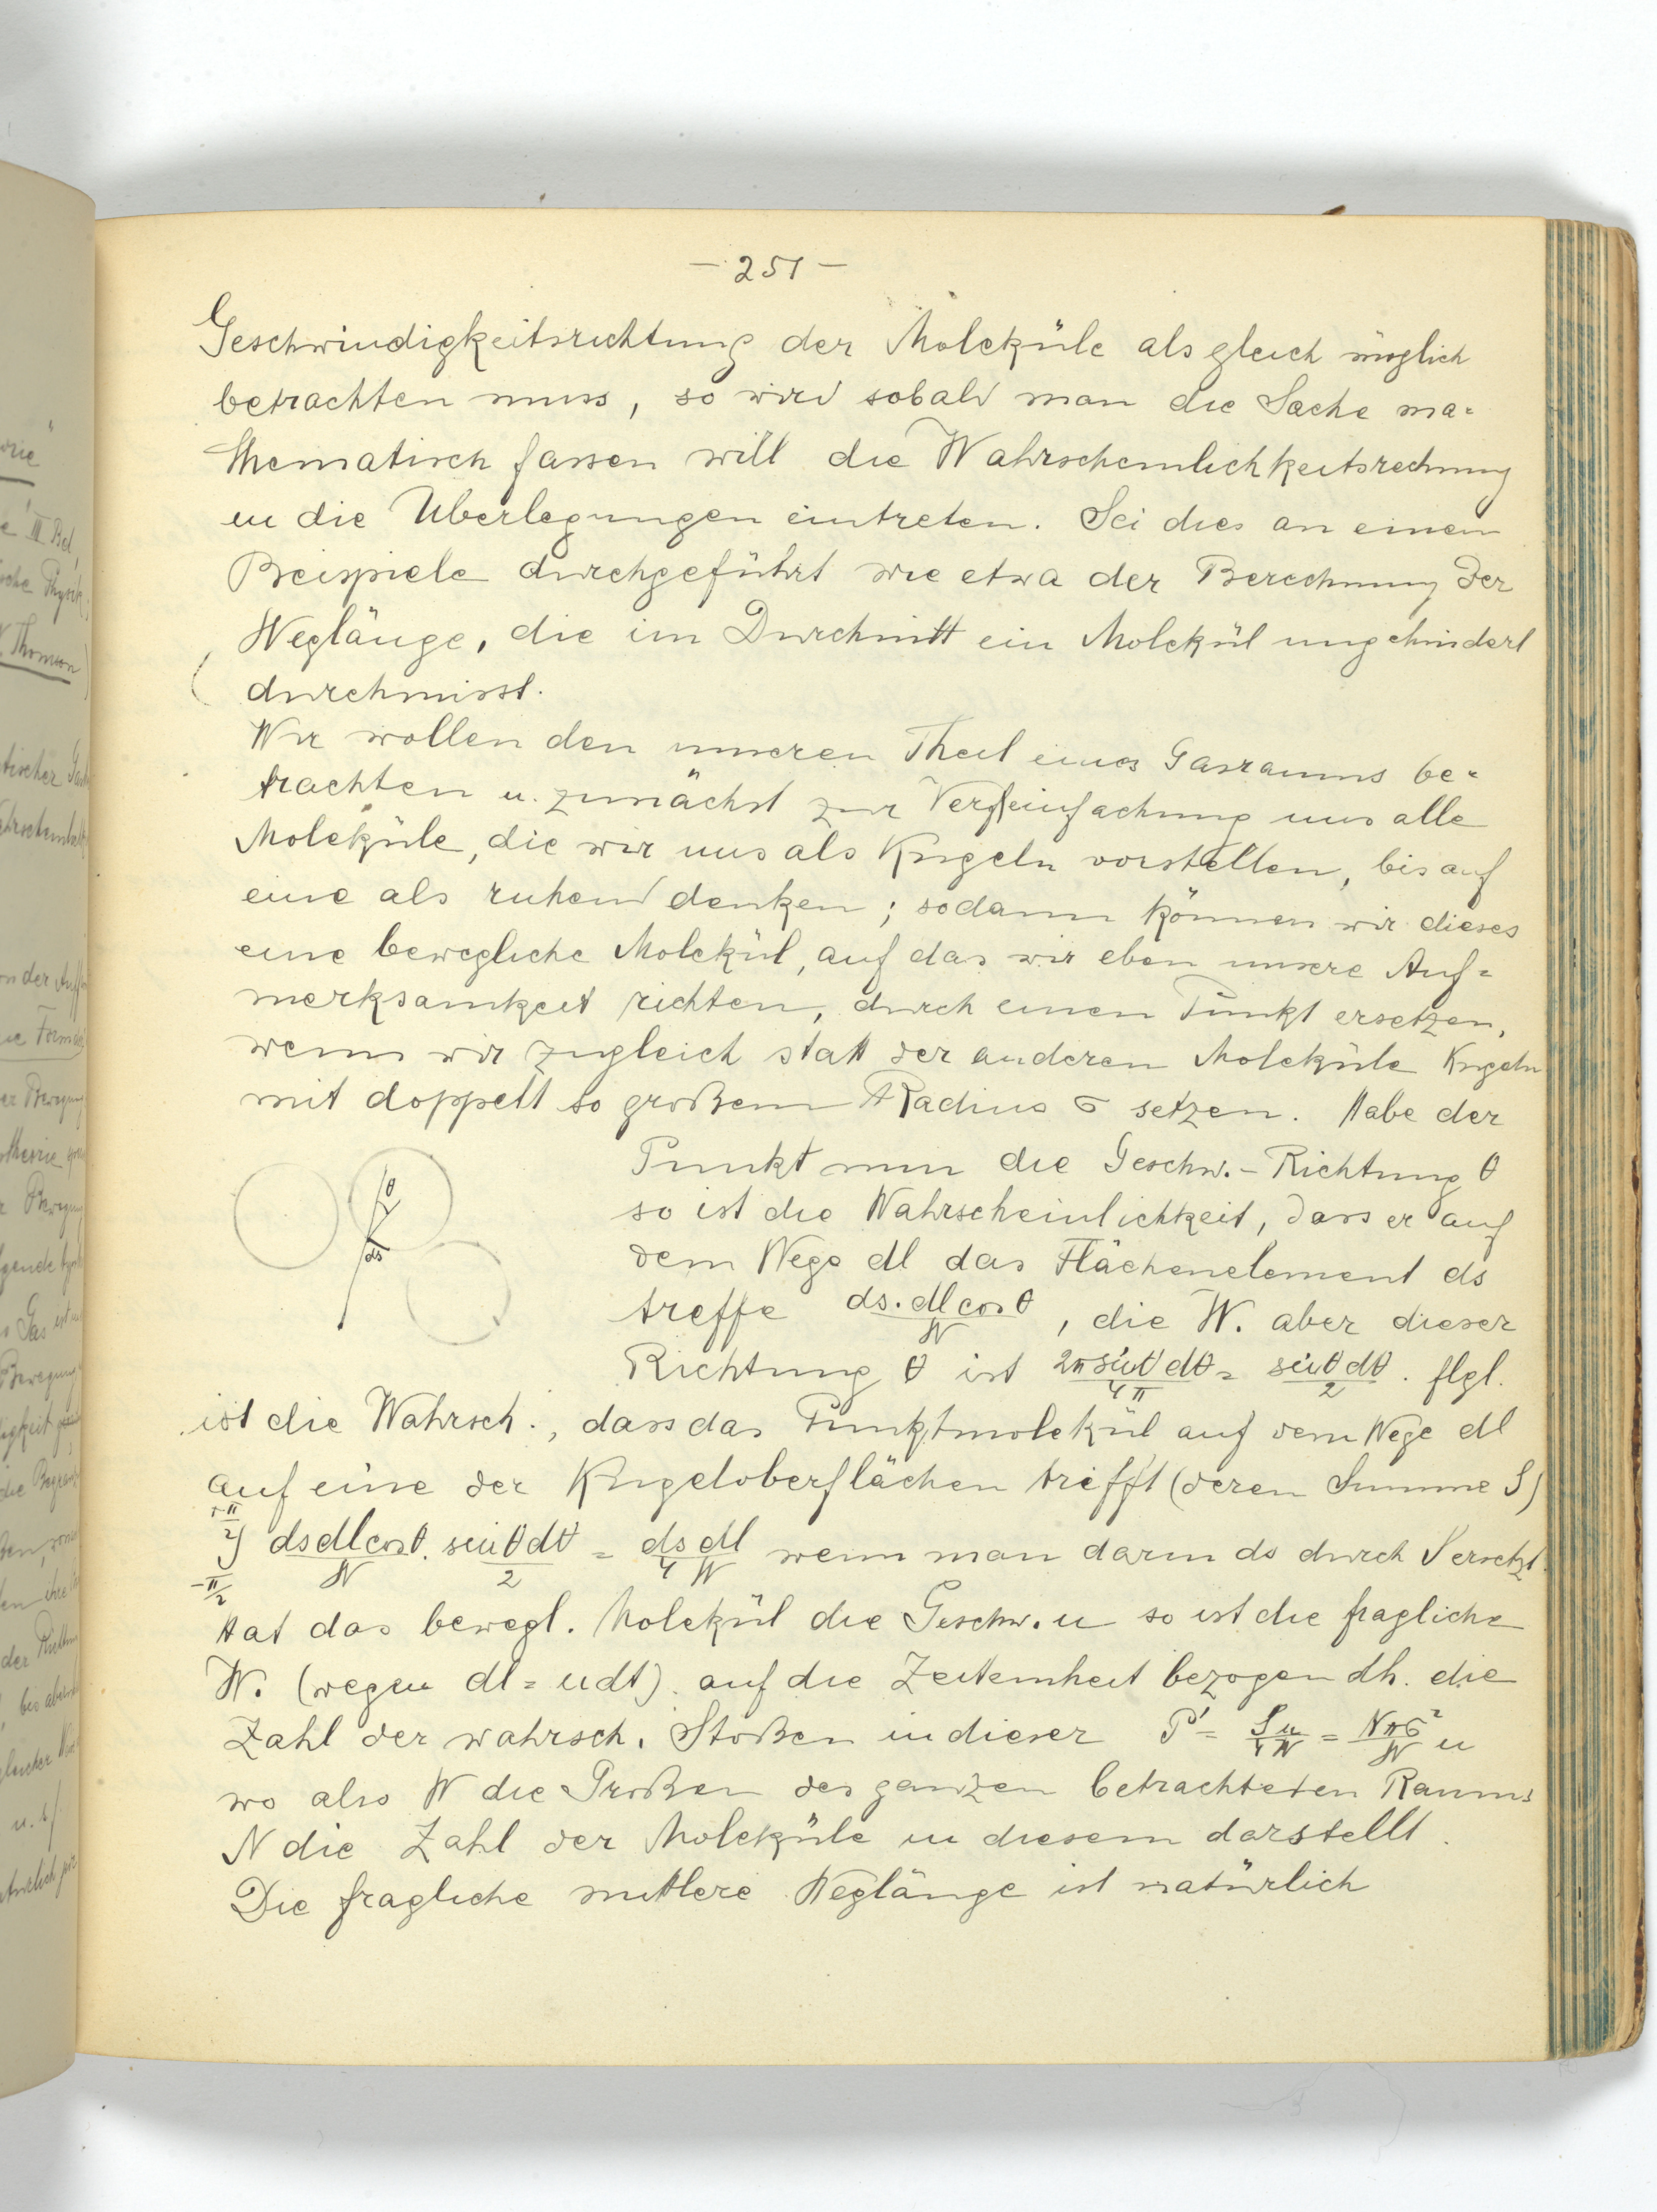 - 251 -
Geschwindigkeitsrichtung der Moleküle als gleich möglich
betrachten muss, so wird sobald man die Sache ma=
thematisch fassen will die Wahrscheinlichkeitsrechnung
in die Überlegungen eintreten. Sei dies an einem
Beispiele durchgeführt wie etwa der Berechnung der
Weglänge, die im Durchnitt ein Molekül ungehindert
durchmisst.
Wir wollen den inneren Theil eines Gasraums be=
trachten u. zunächst zur Vereinfachung uns alle
Moleküle, die wir uns als Kugeln vorstellen, bis auf
eine als ruhend denken; sodann können wir dieses
eine bewegliche Molekül, auf das wir eben unsere Auf=
merksamkeit richten, durch einen Punkt ersetzen,
wenn wir zugleich statt der anderen Moleküle Kugeln
mit doppelt so großem Radius σ setzen. Habe der
Punkt nun die Geschw.-Richtung θ
so ist die Wahrscheinlichkeit, dass er auf
dem Wege dl das Flächenelement ds
treffe ds.dl cos θ / W, die W. aber dieser
Richtung θ ist 2π sin θ dθ / 4π = sin θ dθ / 2. flgl.
θ
ds
ist die Wahrsch., dass das Punktmolekül auf dem Wege dl
auf eine der Kugeloberflächen trifft (deren Summe S)
+π/2 ∫ -π/2 ds dl cos θ / W . sin θ dθ / 2 = ds dl / 4 W wenn man darin ds durch S ersetzt.
Hat das bewegl. Molekül die Geschw. u so ist die fragliche
W. (wegen dl = u dt) auf die Zeiteinheit bezogen dh. die
Zahl der wahrsch. Stoßen in dieser P' = S u / 4 W = N π σ² / W u
wo also W die Großen des ganzen betrachteten Raums
N die Zahl der Moleküle in diesem darstellt.
Die fragliche mittlere Weglänge ist natürlich